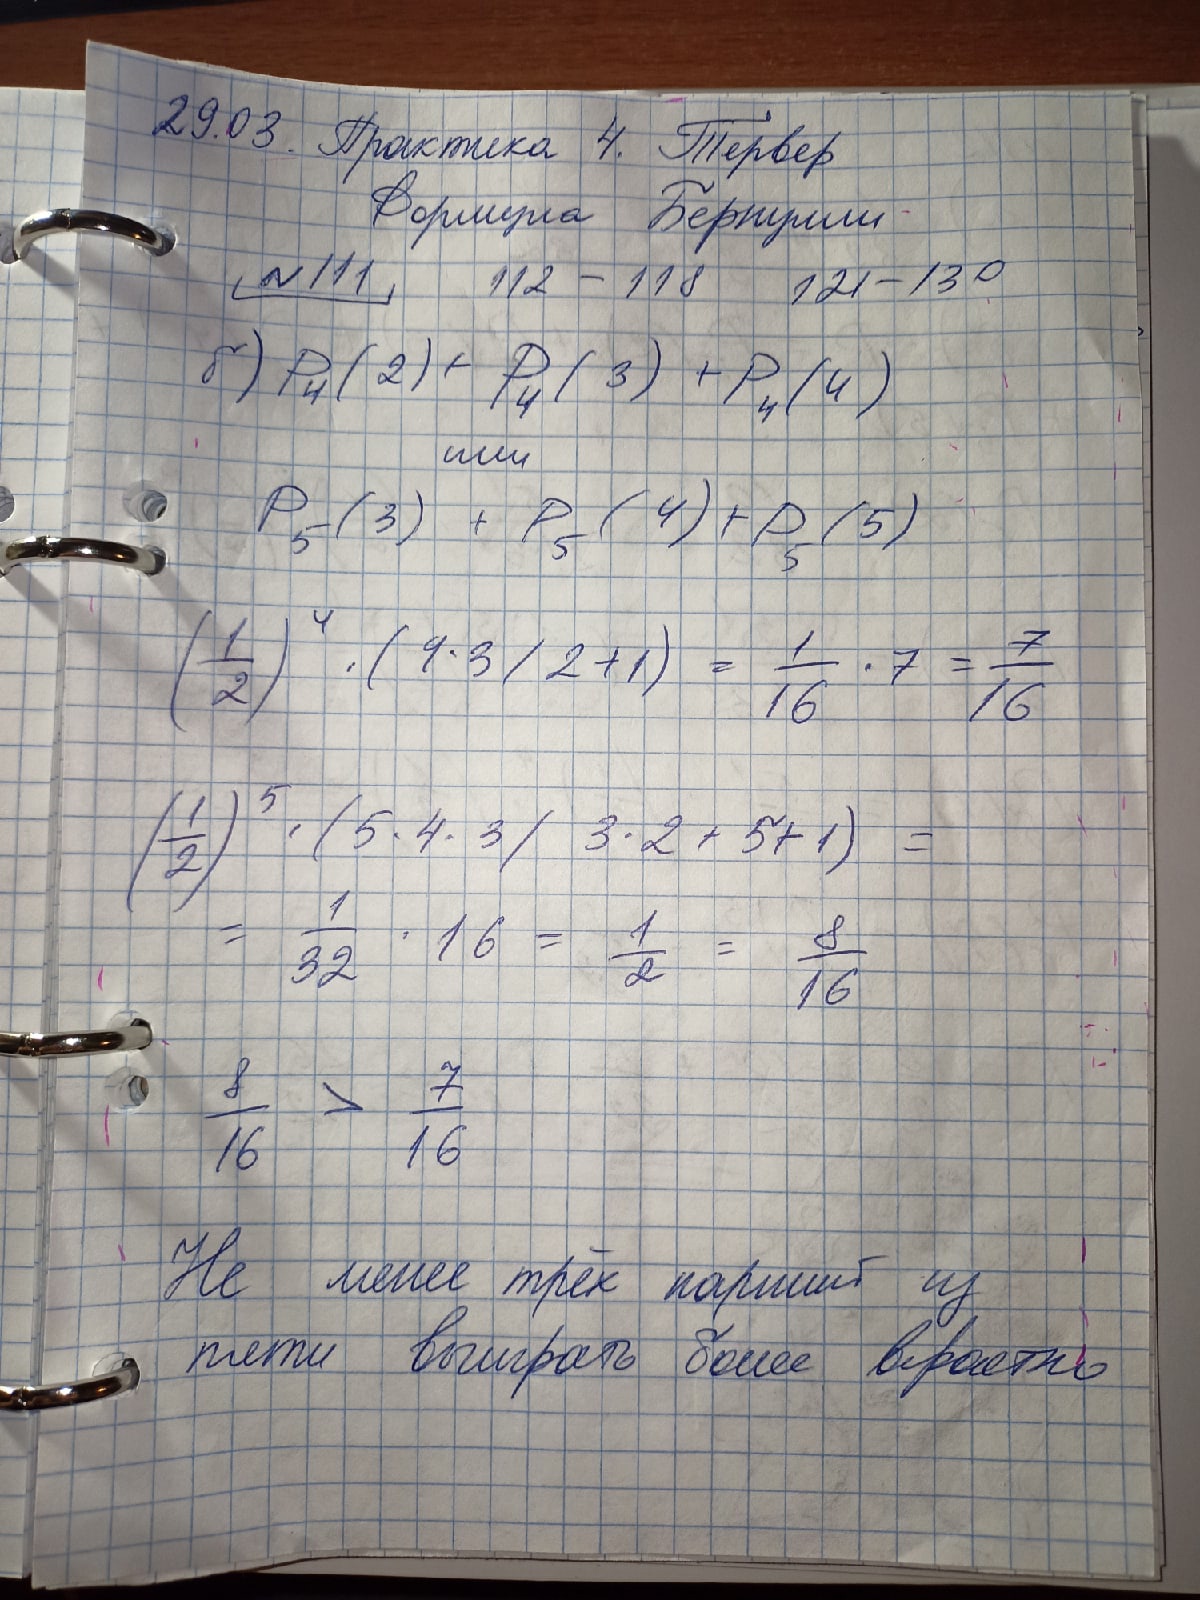 29.03. Практика 4. Тервер
Формула Бернулли
№111 112 - 118 121 - 130
б) P₄(2) + P₄(3) + P₄(4)
или
P₅(3) + P₅(4) + P₅(5)
(1/2)⁴ · (4·3/2+1) = 1/16 · 7 = 7/16
(1/2)⁵ · (5·4·3/ 3·2 + 5+1) =
= 1/32 · 16 = 1/2 = 8/16
8/16 > 7/16
Не менее трёх партий из
пяти выиграть более вероятно